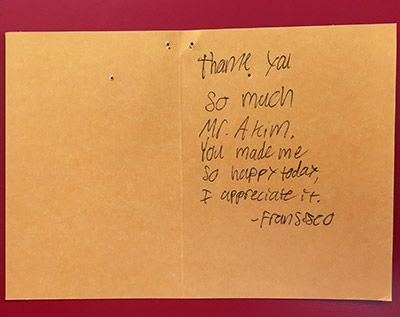 thank you
so much
Mr. Akim.
You made me
so happy today,
I appreciate it.
-Fransisco